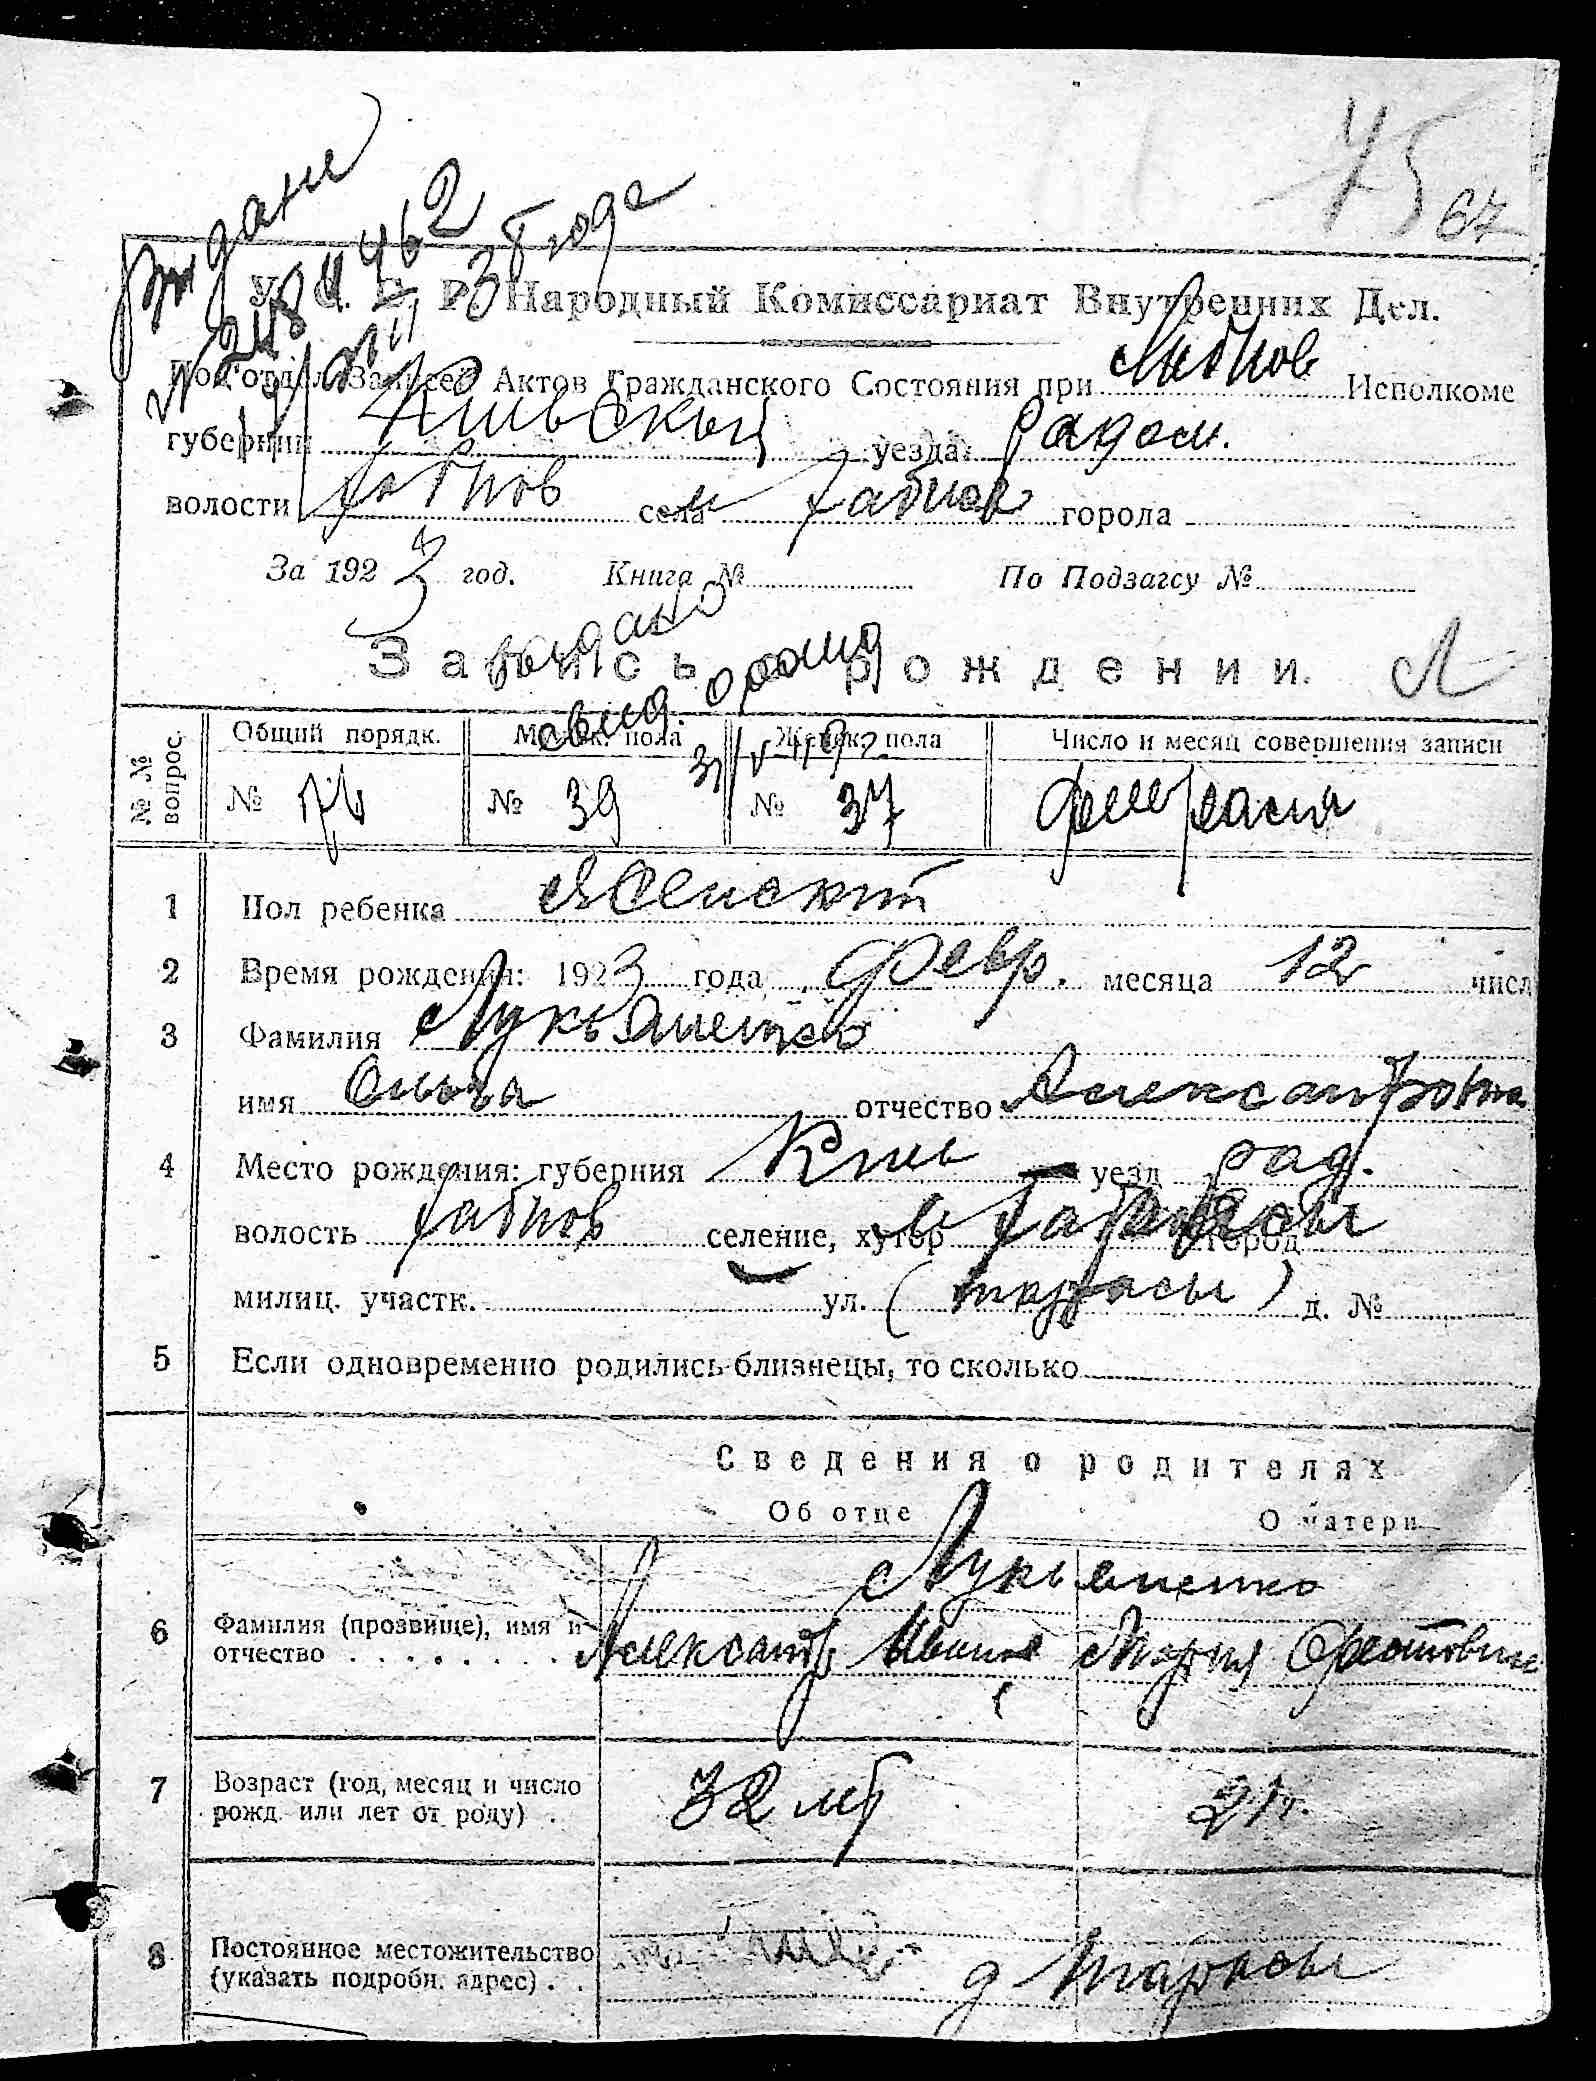 75
67
выдани
У. С. С. Р. Народный Комиссариат Внутренних Дел.
Подотдел Записей Актов Гражданского Состояния при Хабнов Исполкоме
губернии Киевской уезда Радом.
волости Хабнов села м Хабное города
За 1923 год. Книга № По Подзагсу №
выдано
Запись о рождении. Л
свид.
№№ вопрос. Общий порядк. Мужск. пола Женск. пола Число и месяц совершения записи
№ 76 № 39 № 37 февраля
1 Пол ребенка Женский
2 Время рождения: 1923 года февр. месяца 12 числ
3 Фамилия Лукьяненко
имя Ольга отчество Александровна
4 Место рождения: губерния Киев уезд рад.
волость Хабнов селение, хутор город
милиц. участк. ул. (тарасы) д. №
5 Если одновременно родились близнецы, то сколько
Сведения о родителях
Об отце О матери
Лукьяненко
6 Фамилия (прозвище), имя и отчество Александр Иванов Мария Феотовна
7 Возраст (год, месяц и число рожд. или лет от роду) 32 лет 21 г.
8 Постоянное местожительство (указать подробн. адрес) д Тарасы